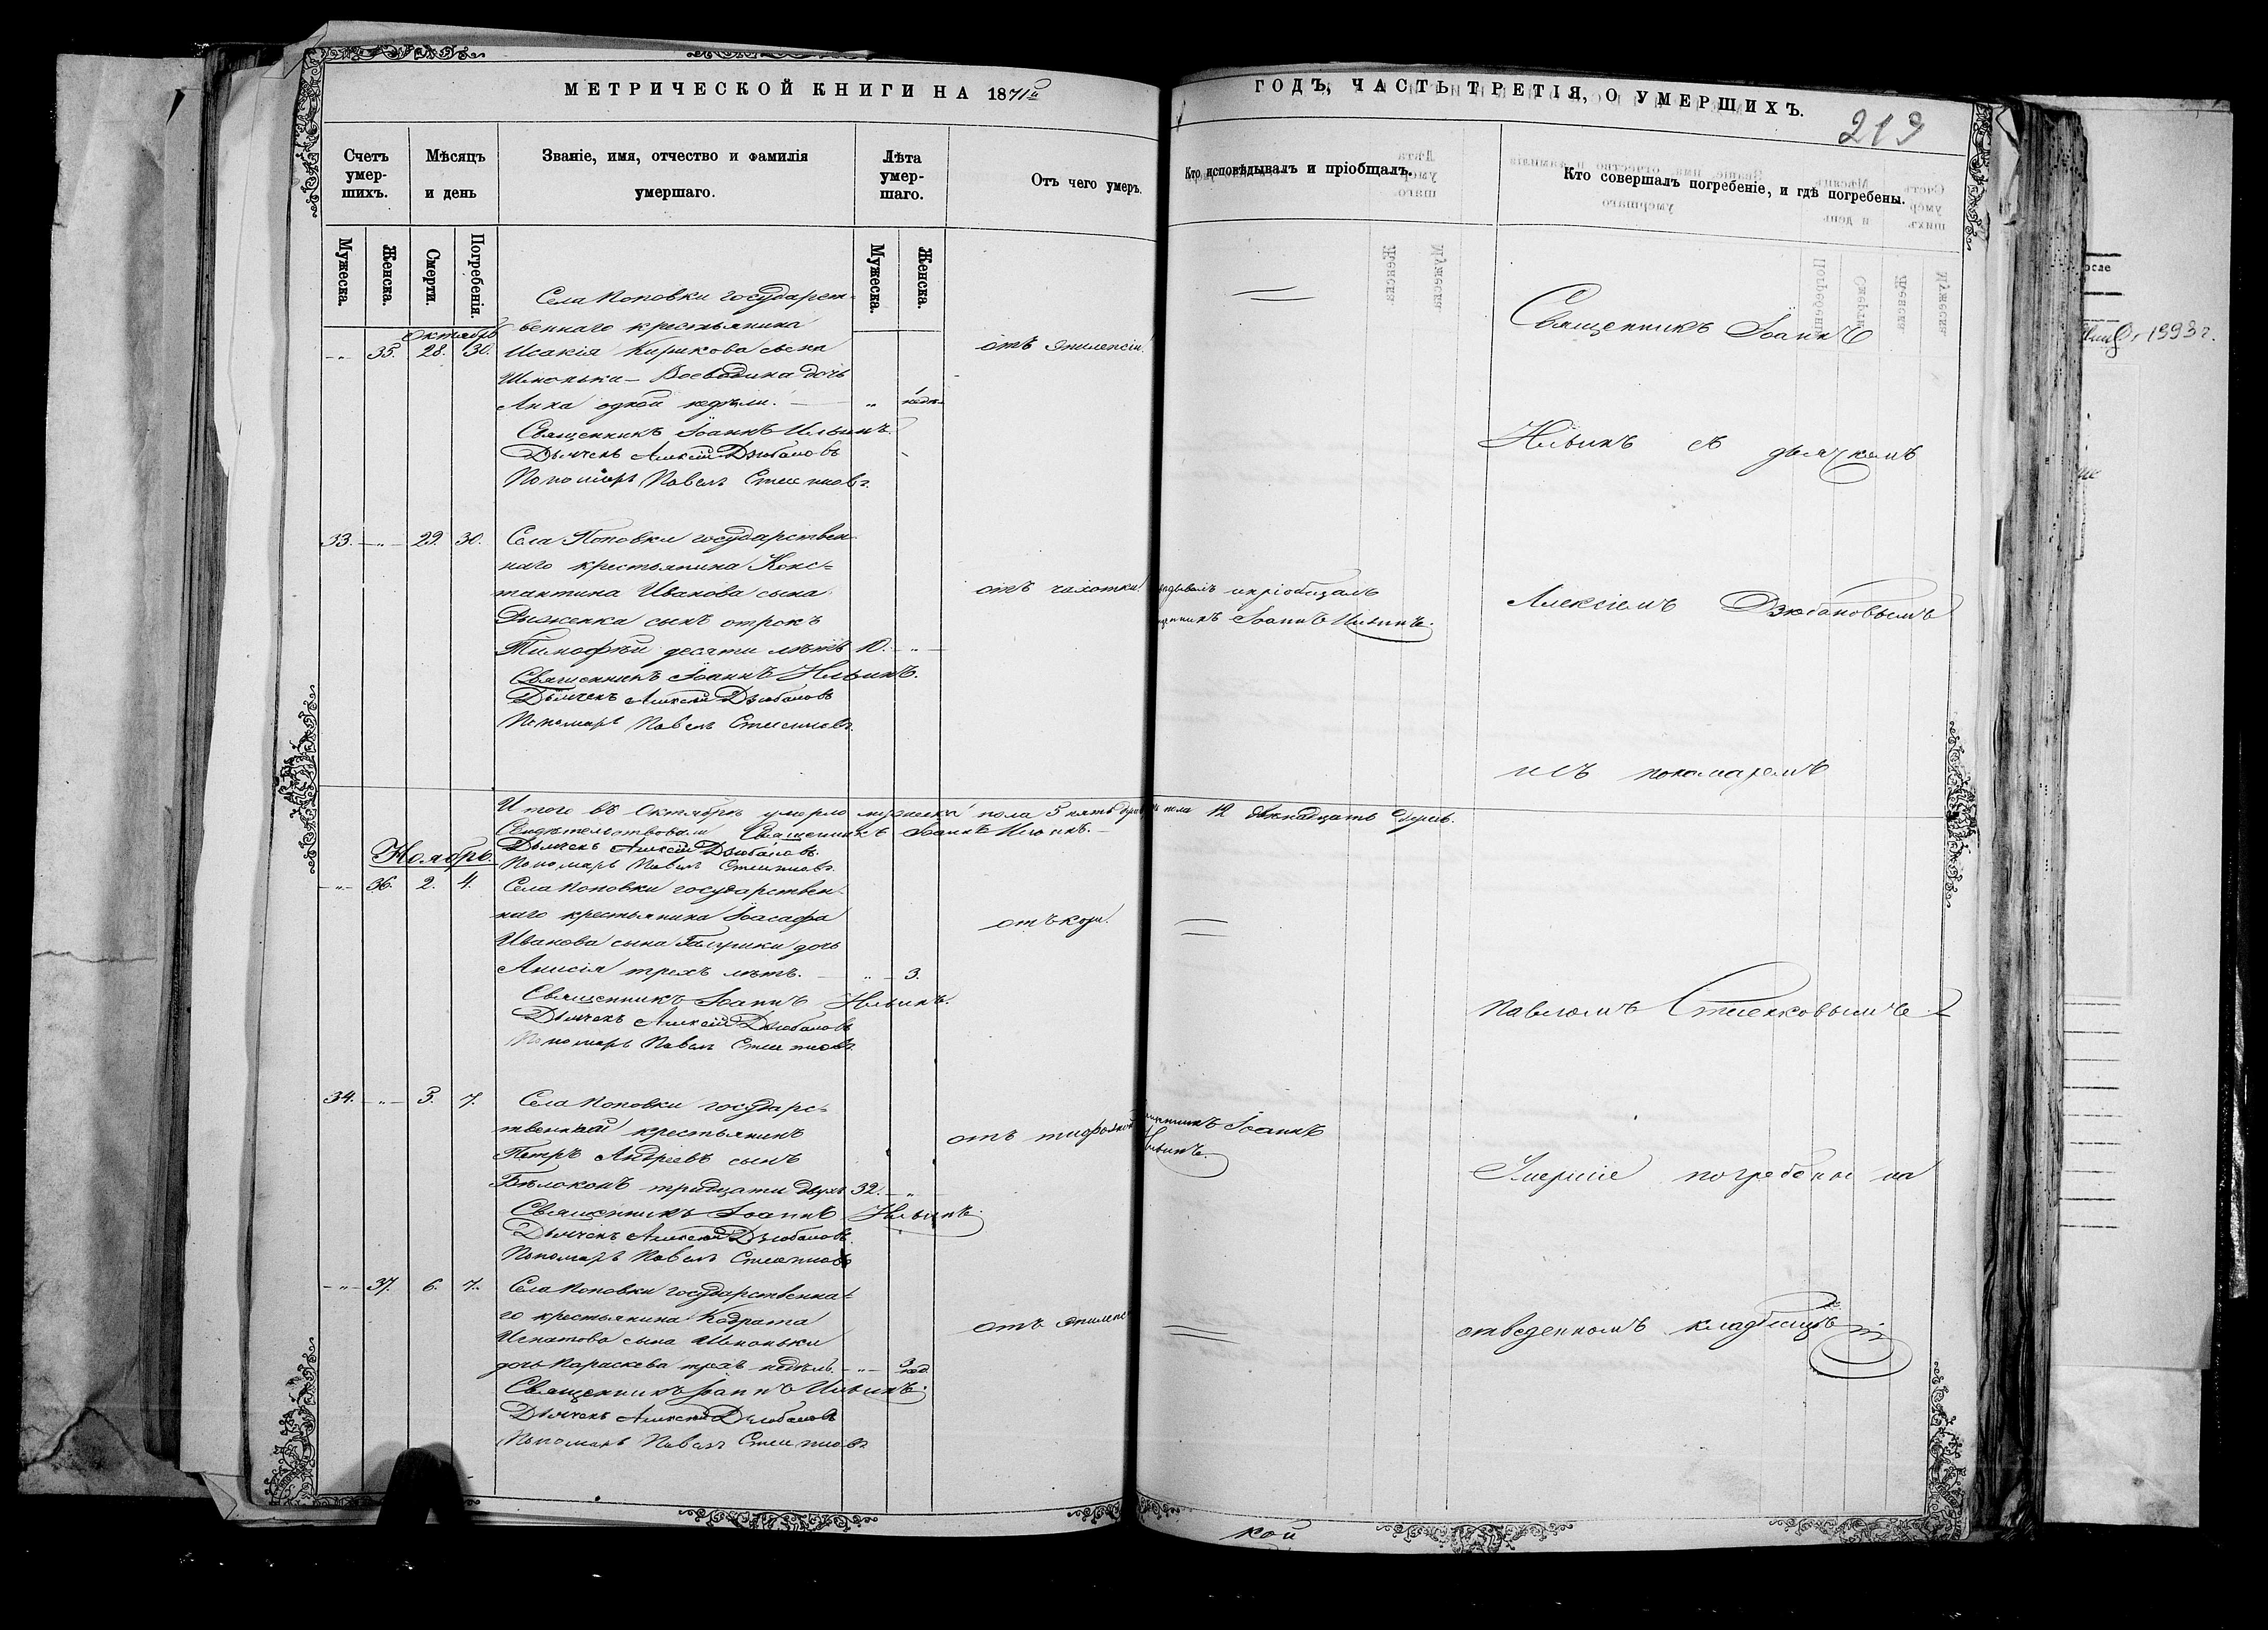 МЕТРИЧЕСКОЙ КНИГИ НА 1871й
ГОДЪ, ЧАСТЬ ТРЕТІЯ, О УМЕРШИХЪ.
219
Счетъ умер-шихъ.
Мѣсяцъ и день
Званіе, имя, отчество и фамилія умершаго.
Лѣта умер-шаго.
Отъ чего умеръ.
Кто исповѣдывалъ и пріобщалъ.
Кто совершалъ погребеніе, и гдѣ погребены.
Мужеска.
Женска.
Смерти.
Погребенія.
Мужеска.
Женска.
Октябрь
Села Поповки государст-
веннаго крестьянина
35. 28. 30. Исакія Кирикова сына
отъ эпилепсіи.
Шконька - Воеводина дочь
Анна одной недѣли. 1 недѣ.
Священникъ Іоаннъ Ильинъ.
Дьячекъ Алексій Дзюбановъ
Пономарь Павелъ
33. 29. 30. Села Поповки государствен-
наго крестьянина Конс-
тантина Иванова сына
отъ чахотки.
сынъ отрокъ
Тимофѣй десяти лѣтъ 10.
Священникъ Іоаннъ Ильинъ.
Дьячекъ Алексій Дзюбановъ
Пономарь Павелъ
и пріобщалъ
Іоаннъ Ильинъ.
Итого въ Октябрѣ умерло мужеска пола 5 пять пола 12 двѣнадцать
Свидѣтельствовали Священникъ Іоаннъ Ильинъ.
Дьячекъ Алексій Дзюбановъ.
Пономарь Павелъ
Ноябрь.
36. 2. 4. Села Поповки государствен-
наго крестьянина Іоасафа
отъ кори.
Иванова сына дочь
Анисія трехъ лѣтъ. 3.
Священникъ Іоаннъ Ильинъ.
Дьячекъ Алексій Дзюбановъ
Пономарь Павелъ
34. 3. 7. Села Поповки государс-
твенный крестьянинъ
отъ
Іоаннъ
Петръ Андреевъ сынъ
Бѣлоконь тридцати двухъ 32.
Священникъ Іоаннъ Ильинъ.
Дьячекъ Алексій Дзюбановъ.
Пономарь Павелъ
37. 6. 7. Села Поповки государственна-
го крестьянина Кодрата
отъ
Игнатова сына Шконьки
дочь Параскева трехъ недѣль. 3 нед.
Священникъ Іоаннъ Ильинъ.
Дьячекъ Алексій Дзюбановъ
Пономарь Павелъ
Священникъ Іоаннъ
Ильинъ съ дьячкомъ
Алексіемъ Дзюбановымъ
и съ пономаремъ
Павломъ
Умершіе погребены на
отведенномъ кладбищѣ
кой
1993 г.